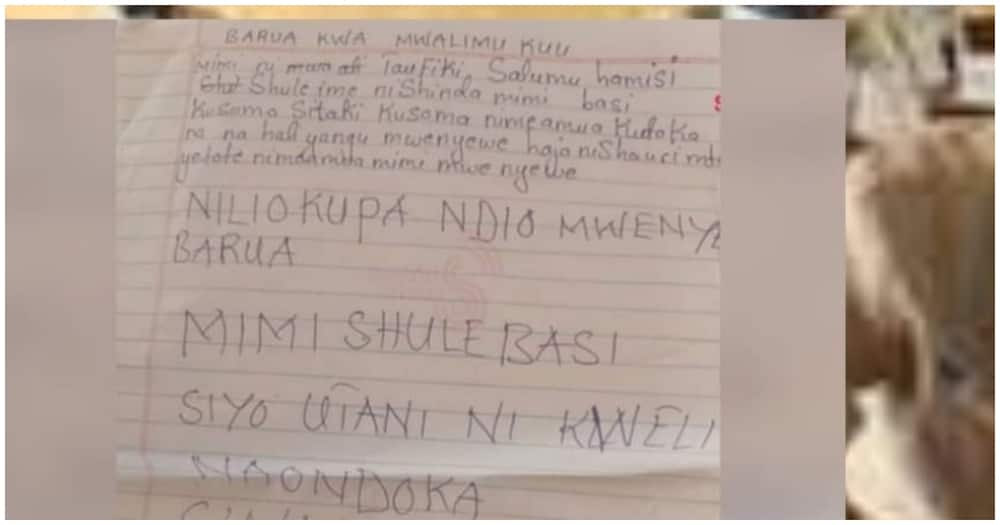 BARUA KWA MWALIMU KUU
mimi Taufiki Salumu hamisi
Shule ime niShinda mimi basi
Kusoma Sitaki Kusoma nimeamua
na na hali yangu mwenyewe haja niShauci
yetote mimi mwe nyewe
NILIOKUPA NDIO MWENY
BARUA
MIMI SHULE BASI
SIYO UTANI NI KWELI
NAONDOKA